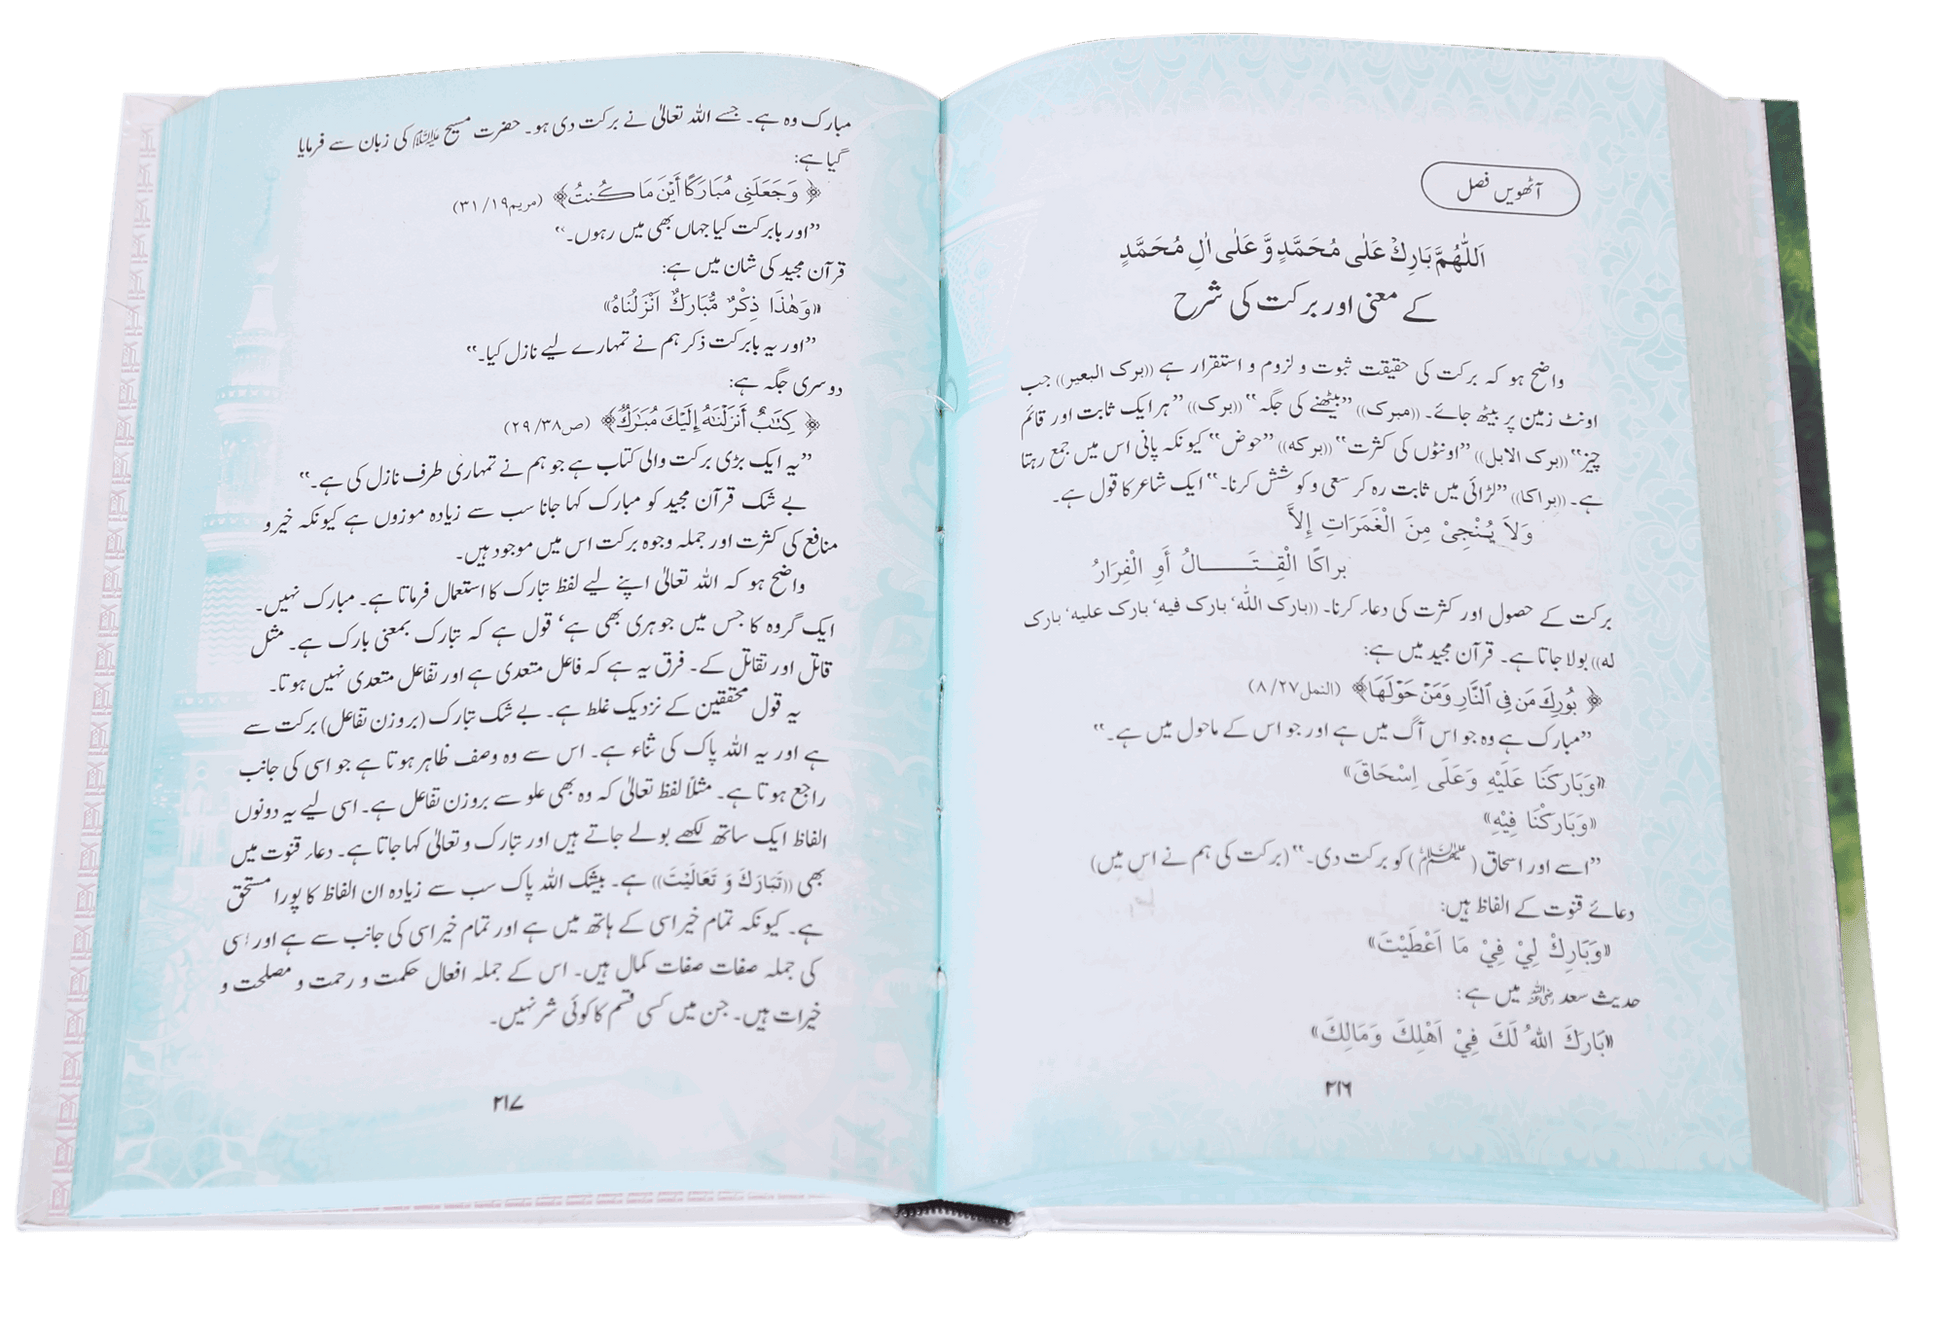 آٹھویں فصل
اَللّٰهُمَّ بَارِكْ عَلٰى مُحَمَّدٍ وَّ عَلٰى اٰلِ مُحَمَّدٍ
کے معنی اور برکت کی شرح
واضح ہو کہ برکت کی حقیقت ثبوت و لزوم و استقرار ہے ((برک البعیر)) جب
اونٹ زمین پر بیٹھ جائے۔ ((مبرک)) ”بیٹھنے کی جگہ“ ((برک)) ”ہر ایک ثابت اور قائم
چیز“ ((برک الابل)) ”اونٹوں کی کثرت“ ((برکه)) ”حوض“ کیونکہ پانی اس میں جمع رہتا
ہے۔ ((براکا)) ”لڑائی میں ثابت رہ کر سعی و کوشش کرنا۔“ ایک شاعر کا قول ہے۔
وَلاَ يُنْجِىْ مِنَ الْغَمَرَاتِ إِلاَّ
براكًا الْقِتَـــالُ أَوِ الْفِرَارُ
برکت کے حصول اور کثرت کی دعاء کرنا۔ ((بارک الله‘ بارک فیه‘ بارک علیه‘ بارک
له)) بولا جاتا ہے۔ قرآن مجید میں ہے:
﴿ بُورِكَ مَن فِى ٱلنَّارِ وَمَنْ حَوْلَهَا﴾ (النمل۲۷/۸)
”مبارک ہے وہ جو اس آگ میں ہے اور جو اس کے ماحول میں ہے۔“
«وَبَارَكْنَا عَلَيْهِ وَعَلَى اِسْحَاقَ»
«وَبَارَكْنَا فِيْهِ»
”اسے اور اسحاق (علیہما السلام) کو برکت دی۔“ (برکت کی ہم نے اس میں)
دعائے قنوت کے الفاظ ہیں:
«وَبَارِكْ لِيْ فِيْ مَا اَعْطَيْتَ»
حدیث سعد رضی اللہ عنہ میں ہے:
«بَارَكَ اللهُ لَكَ فِيْ اَهْلِكَ وَمَالِكَ»
۲۱۶
مبارک وہ ہے۔ جسے اللہ تعالیٰ نے برکت دی ہو۔ حضرت مسیح علیہ السلام کی زبان سے فرمایا
گیا ہے:
﴿ وَجَعَلَنِى مُبَارَكًا أَيْنَ مَا كُنتُ﴾ (مریم۱۹/۳۱)
”اور بابرکت کیا جہاں بھی میں رہوں۔“
قرآن مجید کی شان میں ہے:
«وَهٰذَا ذِكْرٌ مُّبَارَكٌ اَنْزَلْنَاهُ»
”اور یہ بابرکت ذکر ہم نے تمہارے لیے نازل کیا۔“
دوسری جگہ ہے:
﴿ كِتَٰبٌ أَنزَلْنَٰهُ إِلَيْكَ مُبَٰرَكٌ﴾ (ص۳۸/۲۹)
”یہ ایک بڑی برکت والی کتاب ہے جو ہم نے تمہاری طرف نازل کی ہے۔“
بے شک قرآن مجید کو مبارک کہا جانا سب سے زیادہ موزوں ہے کیونکہ خیر و
منافع کی کثرت اور جملہ وجوہ برکت اس میں موجود ہیں۔
واضح ہو کہ اللہ تعالیٰ اپنے لیے لفظ تبارک کا استعمال فرماتا ہے۔ مبارک نہیں۔
ایک گروہ کا جس میں جوہری بھی ہے‘ قول ہے کہ تبارک بمعنی بارک ہے۔ مثل
قاتل اور تقاتل کے۔ فرق یہ ہے کہ فاعل متعدی ہے اور تفاعل متعدی نہیں ہوتا۔
یہ قول محققین کے نزدیک غلط ہے۔ بے شک تبارک (بروزن تفاعل) برکت سے
ہے اور یہ اللہ پاک کی ثناء ہے۔ اس سے وہ وصف ظاہر ہوتا ہے جو اسی کی جانب
راجع ہوتا ہے۔ مثلاً لفظ تعالیٰ کہ وہ بھی علو سے بروزن تفاعل ہے۔ اسی لیے یہ دونوں
الفاظ ایک ساتھ لکھے بولے جاتے ہیں اور تبارک و تعالیٰ کہا جاتا ہے۔ دعاء قنوت میں
بھی ((تَبَارَكَ وَ تَعَالَيْتَ)) ہے۔ بیشک اللہ پاک سب سے زیادہ ان الفاظ کا پورا مستحق
ہے۔ کیونکہ تمام خیر اسی کے ہاتھ میں ہے اور تمام خیر اسی کی جانب سے ہے اور اسی
کی جملہ صفات صفات کمال ہیں۔ اس کے جملہ افعال حکمت و رحمت و مصلحت و
خیرات ہیں۔ جن میں کسی قسم کا کوئی شر نہیں۔
۲۱۷